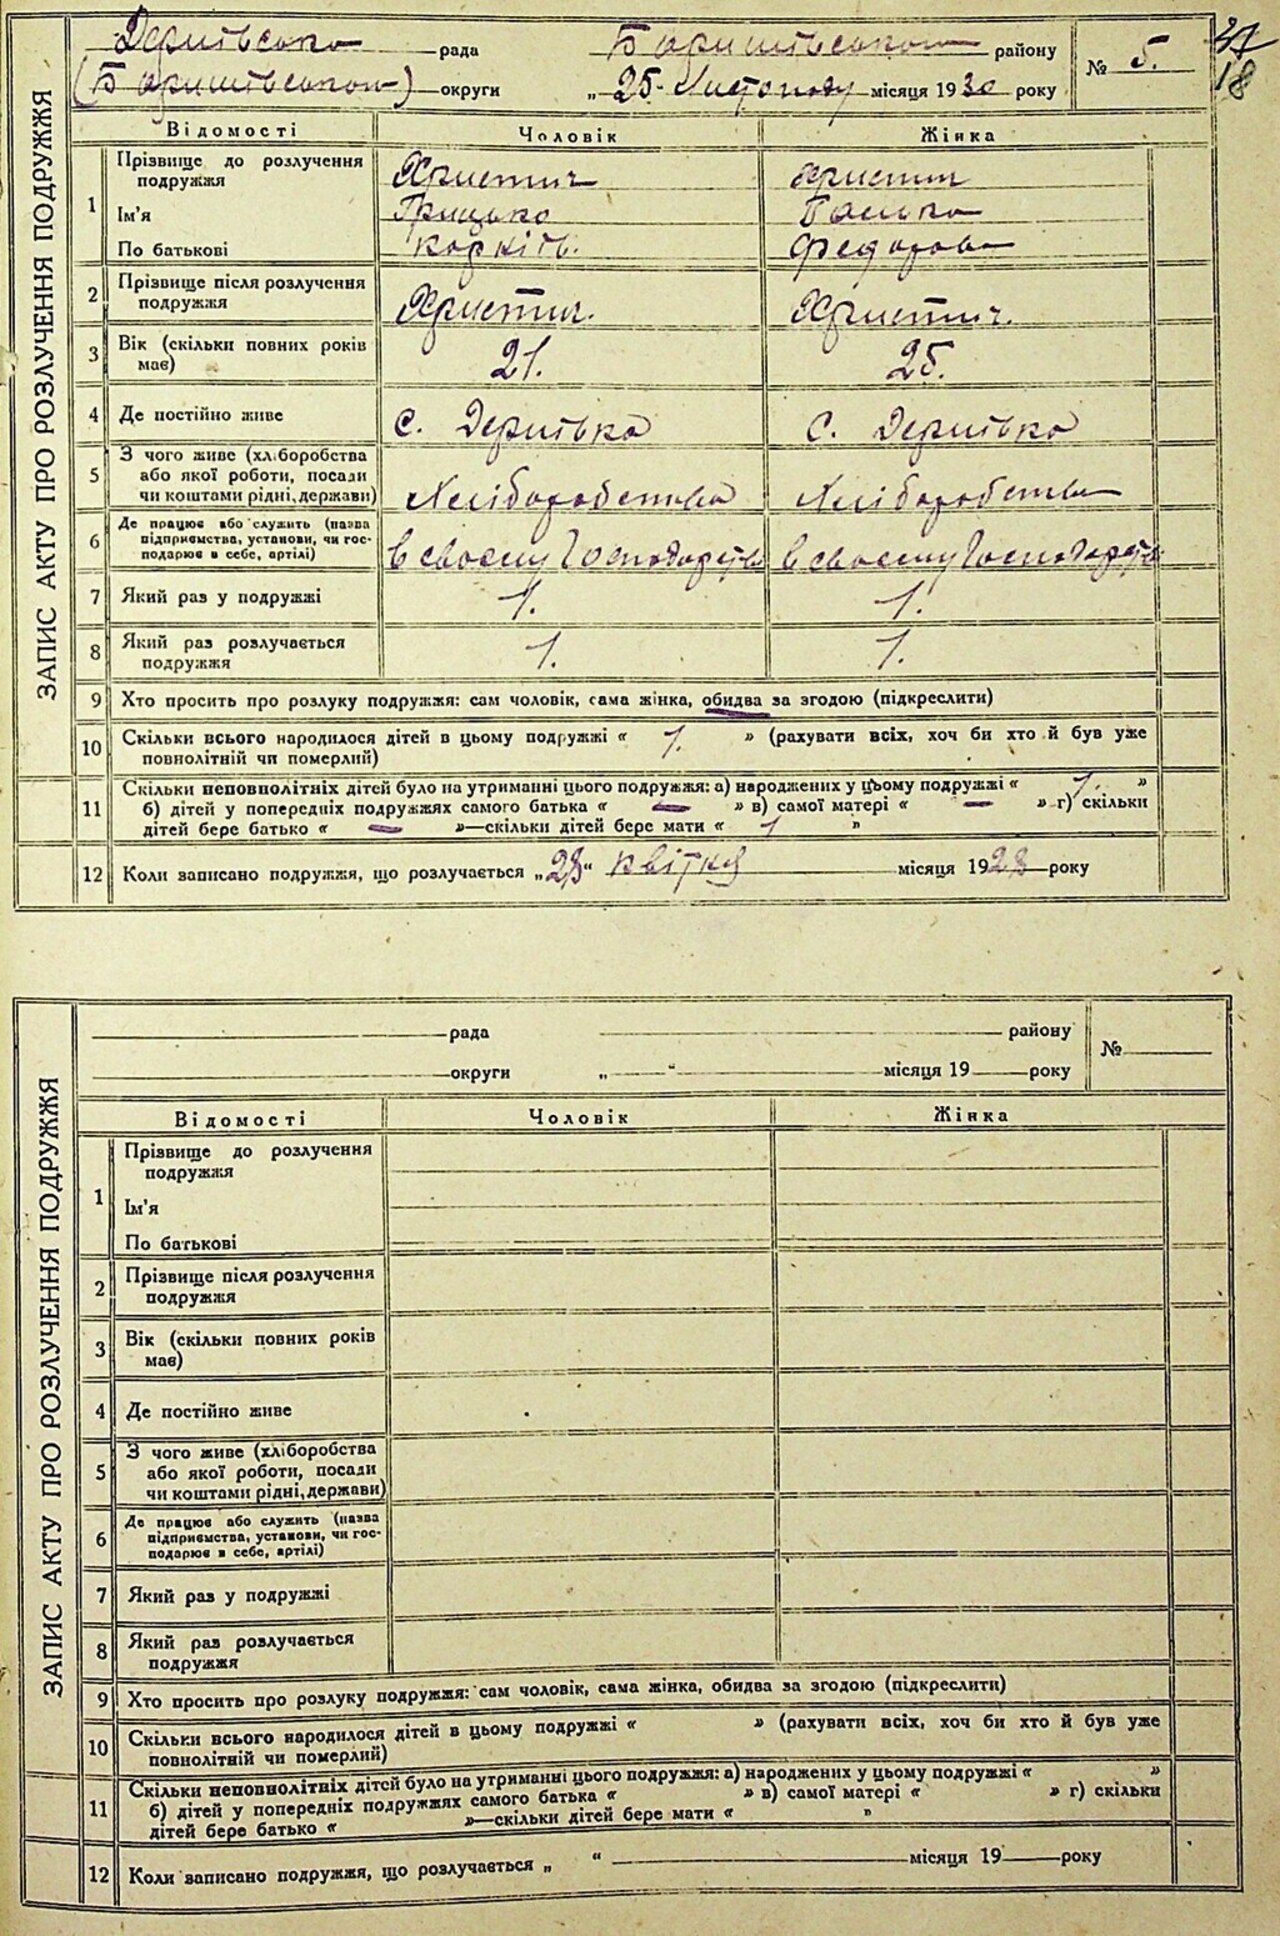 37
18
ЗАПИС АКТУ ПРО РОЗЛУЧЕННЯ ПОДРУЖЖЯ
рада Баришівського району № 5.
(Баришівського) округи „ 25 - Листопаду місяця 1930 року
Відомості Чоловік Жінка
1 Прізвище до розлучення подружжя Христич Христич
Ім'я Грицько
По батькові Федорова
2 Прізвище після розлучення подружжя Христич. Христич.
3 Вік (скільки повних років має) 21. 25.
4 Де постійно живе с. с.
5 З чого живе (хліборобства або якої роботи, посади чи коштами рідні, держави) Хліборобства Хліборобства
6 Де працює або служить (назва підприємства, установи, чи господарює в себе, артілі) в своєму Господарстві в своєму Господарстві
7 Який раз у подружжі 1. 1.
8 Який раз розлучається подружжя 1. 1.
9 Хто просить про розлуку подружжя: сам чоловік, сама жінка, обидва за згодою (підкреслити)
10 Скільки всього народилося дітей в цьому подружжі « 1. » (рахувати всіх, хоч би хто й був уже
повнолітній чи померлий)
11 Скільки неповнолітніх дітей було на утриманні цього подружжя: а) народжених у цьому подружжі « 1. »
б) дітей у попередніх подружжях самого батька « — » в) самої матері « — » г) скільки
дітей бере батько « — »—скільки дітей бере мати « 1 »
12 Коли записано подружжя, що розлучається „28“ квітня місяця 1928 року
ЗАПИС АКТУ ПРО РОЗЛУЧЕННЯ ПОДРУЖЖЯ
рада району №
округи „ “ місяця 19 року
Відомості Чоловік Жінка
1 Прізвище до розлучення
подружжя
Ім'я
По батькові
2 Прізвище після розлучення
подружжя
3 Вік (скільки повних років
має)
4 Де постійно живе
5 З чого живе (хліборобства
або якої роботи, посади
чи коштами рідні, держави)
6 Де працює або служить (назва
підприємства, установи, чи гос-
подарює в себе, артілі)
7 Який раз у подружжі
8 Який раз розлучається
подружжя
9 Хто просить про розлуку подружжя: сам чоловік, сама жінка, обидва за згодою (підкреслити)
10 Скільки всього народилося дітей в цьому подружжі « » (рахувати всіх, хоч би хто й був уже
повнолітній чи померлий)
11 Скільки неповнолітніх дітей було на утриманні цього подружжя: а) народжених у цьому подружжі « »
б) дітей у попередніх подружжях самого батька « » в) самої матері « » г) скільки
дітей бере батько « »—скільки дітей бере мати « »
12 Коли записано подружжя, що розлучається „ “ місяця 19 року